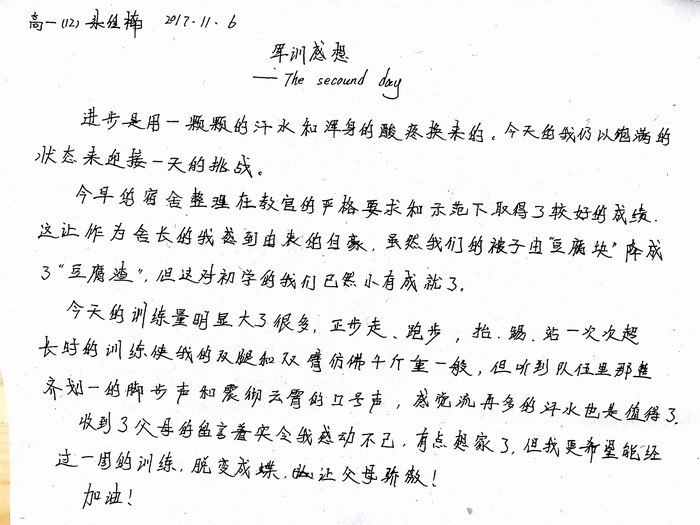 高一(12) 2017.11.6
军训感想
—— The secound day
进步是用一颗颗的汗水和浑身的酸疼换来的。今天的我们以饱满的
状态来迎接一天的挑战。
今早的宿舍整理在教官的严格要求和示范下取得了较好的成绩.
这让作为舍长的我感到由衷的自豪，虽然我们的被子由“豆腐块”降成
了“豆腐渣”，但这对初学的我们已然小有成就了.
今天的训练量明显大了很多，正步走、跑步，抬.踢.站一次次超
长时的训练使我的双腿和双臂仿佛千斤重一般，但听到队伍里那整
齐划一的脚步声和震彻云霄的口号声，感觉流再多的汗水也是值得了.
收到了父母的留言着实令我感动不已，有点想家了，但我更希望能经
过一周的训练，脱变成蝶，让父母骄傲！
加油！